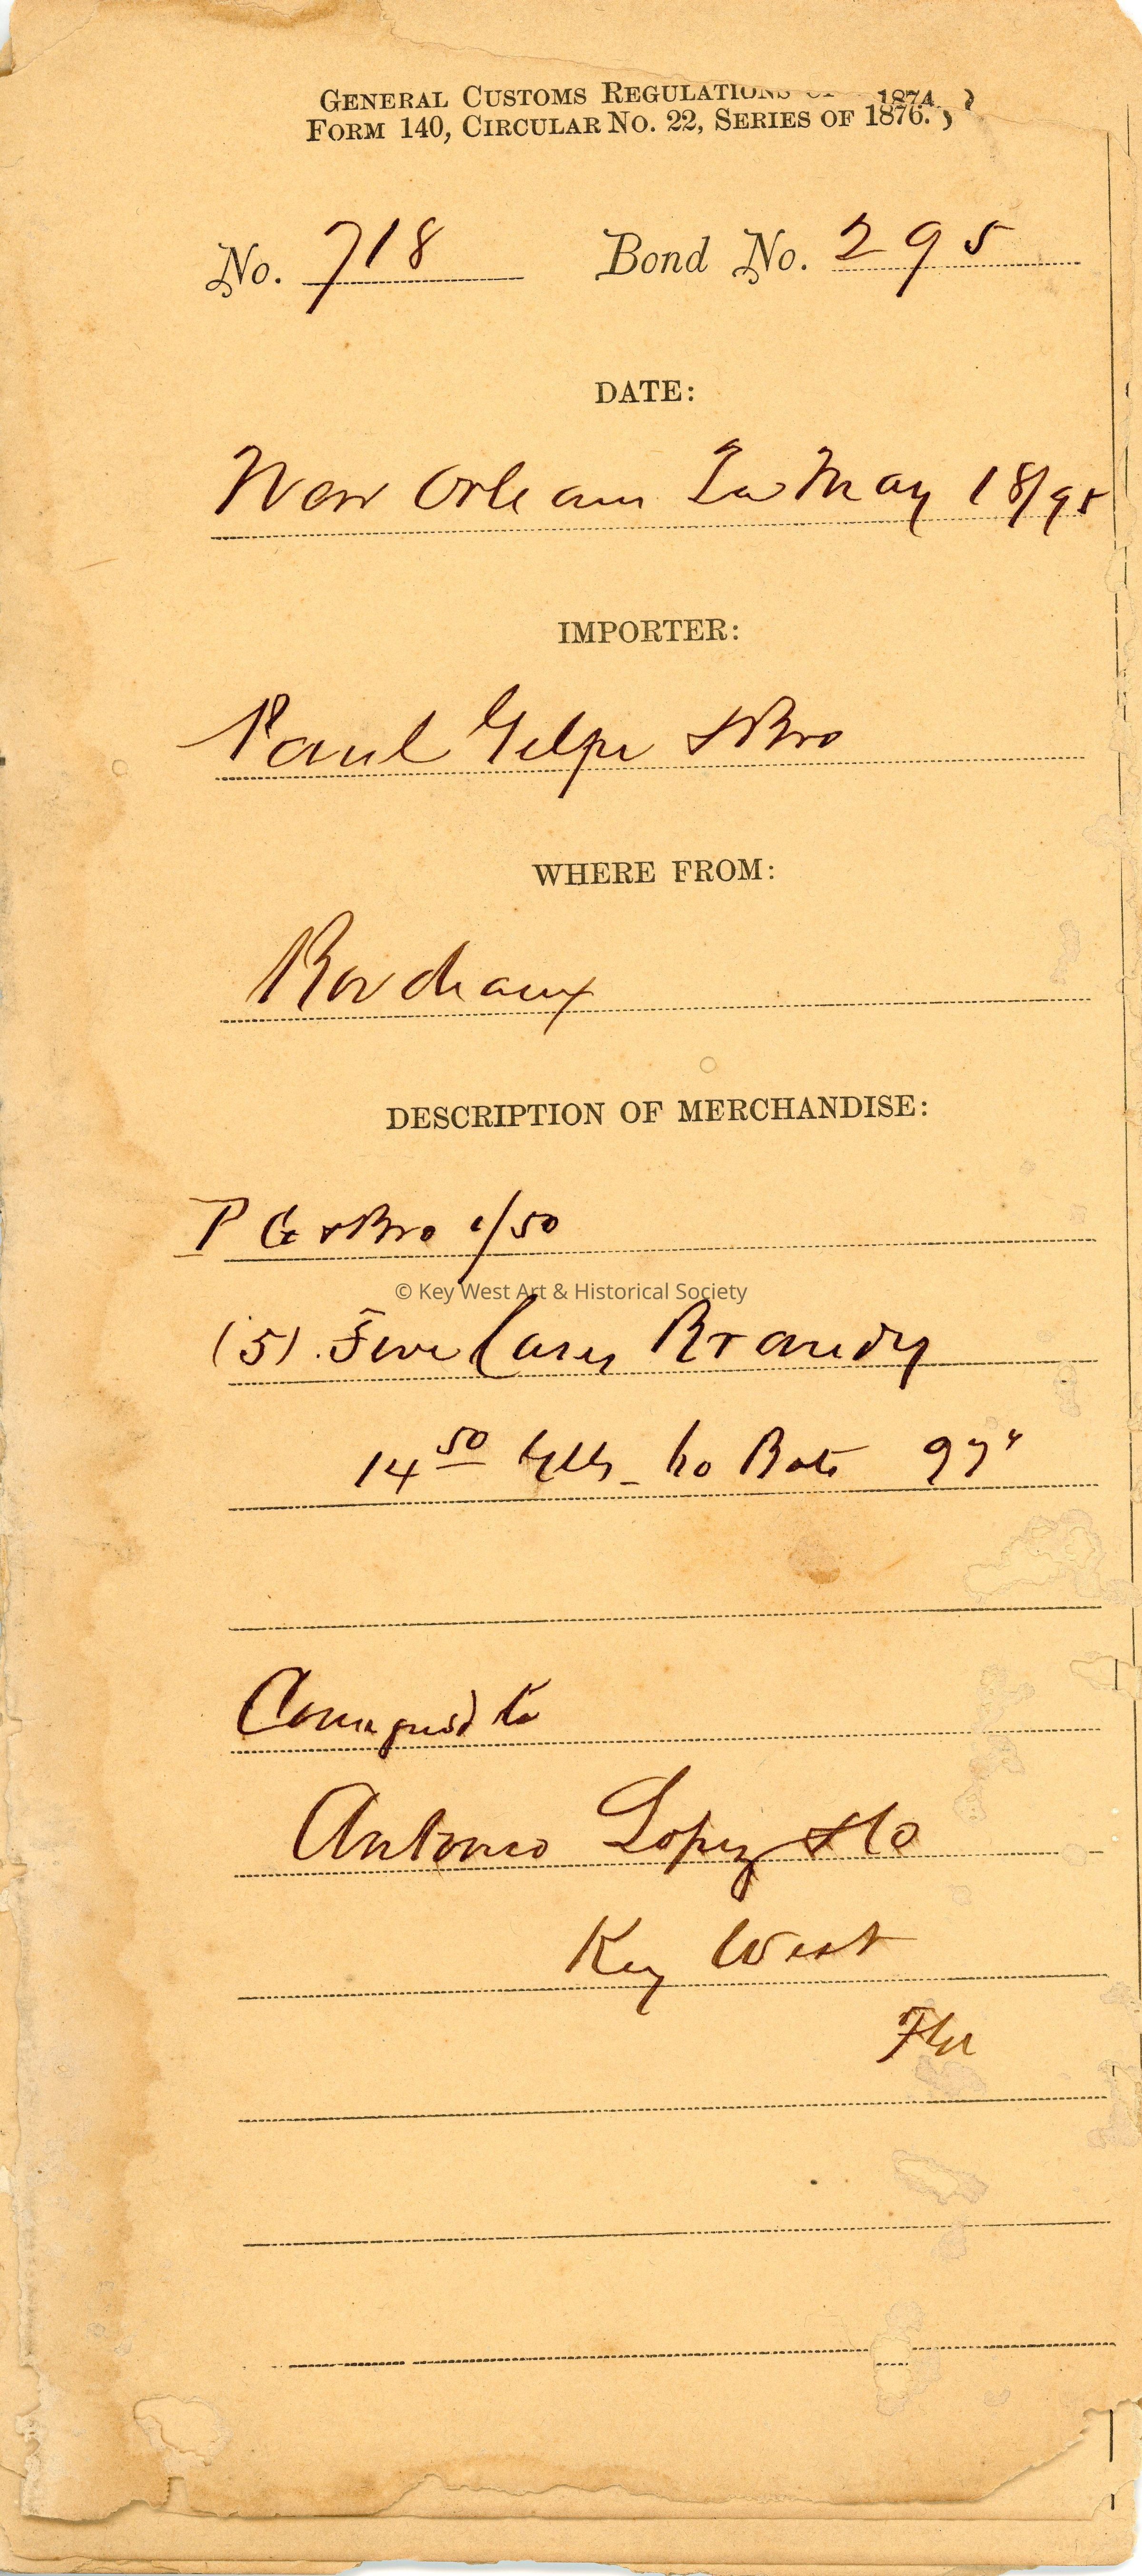 GENERAL CUSTOMS REGULATIONS OF 1874, }
FORM 140, CIRCULAR NO. 22, SERIES OF 1876. }
No. 718 Bond No. 295
DATE:
New Orleans La May 18/95
IMPORTER:
Paul Gelpi & Bro
WHERE FROM:
Bordeaux
DESCRIPTION OF MERCHANDISE:
P G & Bro 1/50
© Key West Art & Historical Society
(5) Five Cases Brandy
14 50 Glls 60 Bots
Consigned to
Antonio Lopez & Co
Key West
Fla